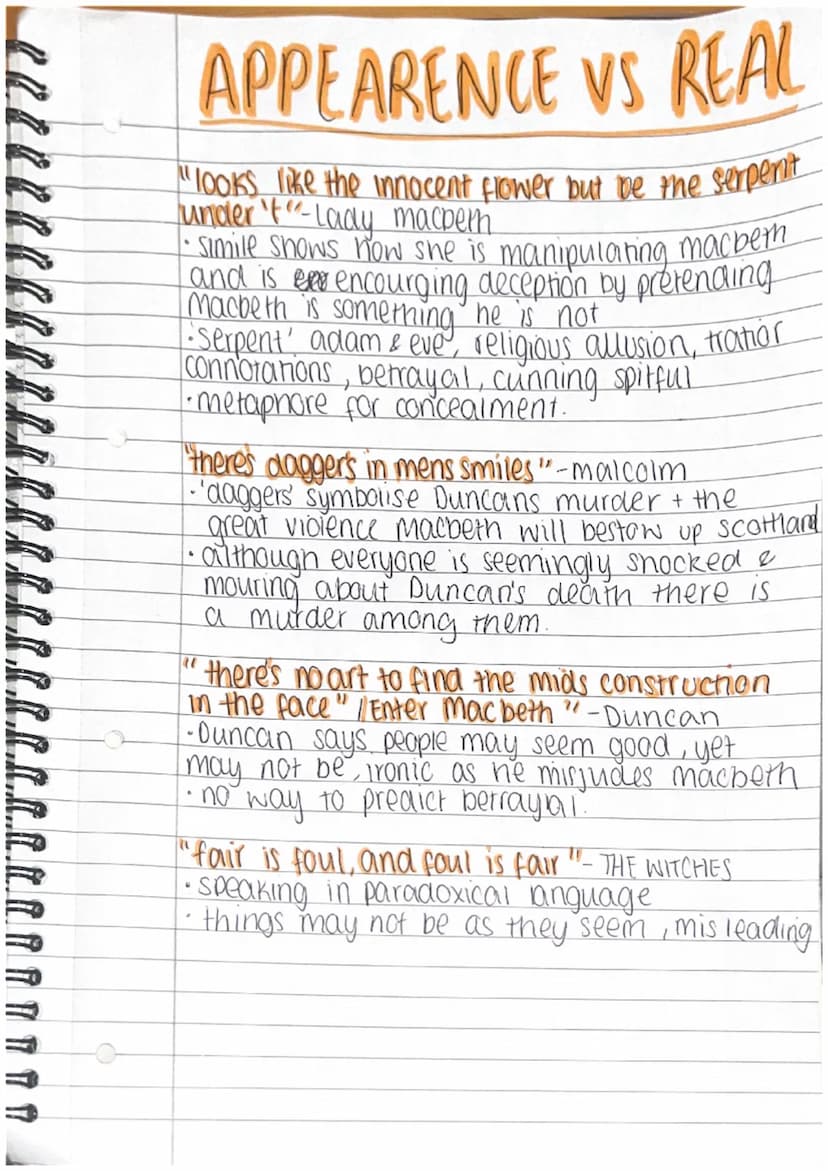 APPEARENCE VS REAL
"looks like the innocent flower but be the serpent
under 't" - Lady macbeth
· simile shows how she is manipulating macbeth
and is encouraging deception by pretending
Macbeth is something he is not
· 'serpent' adam & eve, religious allusion, tratior
connotations, betrayal, cunning spitful
· metaphore for concealment.
"there's daggers in mens smiles" - malcolm
· 'daggers' symbolise Duncans murder + the
great violence Macbeth will bestow up scotland
· although everyone is seemingly shocked &
mouring about Duncan's death there is
a murder among them.
"there's no art to find the mids construction
in the face" //Enter Macbeth" - Duncan
· Duncan says people may seem good, yet
may not be, ironic as he misjudes macbeth
· no way to predict betrayal.
"fair is foul, and foul is fair" - THE WITCHES
· speaking in paradoxical language
· things may not be as they seem, misleading